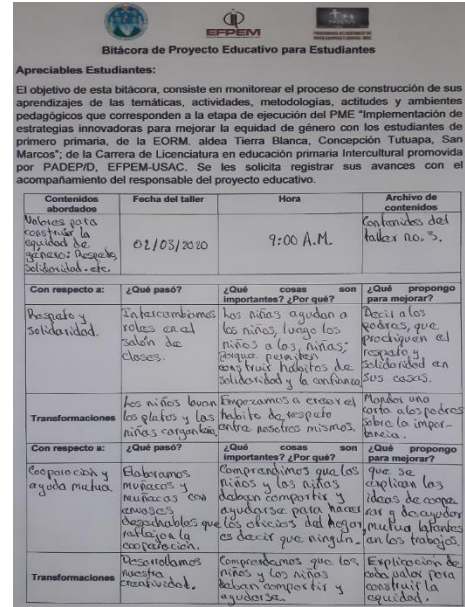 EFPEM
Bitácora de Proyecto Educativo para Estudiantes
Apreciables Estudiantes:
El objetivo de esta bitácora, consiste en monitorear el proceso de construcción de sus
aprendizajes de las temáticas, actividades, metodologías, actitudes y ambientes
pedagógicos que corresponden a la etapa de ejecución del PME "Implementación de
estrategias innovadoras para mejorar la equidad de género con los estudiantes de
primero primaria, de la EORM. aldea Tierra Blanca, Concepción Tutuapa, San
Marcos"; de la Carrera de Licenciatura en educación primaria Intercultural promovida
por PADEP/D, EFPEM-USAC. Se les solicita registrar sus avances con el
acompañamiento del responsable del proyecto educativo.
Contenidos abordados
Fecha del taller
Hora
Archivo de contenidos
Valores para
construir la
equidad de
género: Respeto,
Solidaridad. etc.
02/03/2020
9:00 A.M.
Contenidos del
taller no. 3.
Con respecto a:
¿Qué pasó?
¿Qué cosas son
importantes? ¿Por qué?
¿Qué propongo
para mejorar?
Respeto y
solidaridad.
Intercambiamos
roles en el
salón de
clases.
Los niñas ayudan a
los niños, luego los
niños a las niñas;
porque permiten
construir habitos de
solidaridad y la confianza
Decir a los
padres, que
practiquen el
respeto y
solidaridad en
sus casas.
Transformaciones
Los niños lavan
los platos y las
niñas cargan leña.
Empezamos a crear el
habito de respeto
entre nosotros mismos.
Mandar una
carta a los padres
sobre la impor-
tancia.
Con respecto a:
¿Qué pasó?
¿Qué cosas son
importantes? ¿Por qué?
¿Qué propongo
para mejorar?
Cooperación y
ayuda mutua.
Elaboramos
muñecos y
muñecas con
envases
desechables que
reflejan la
cooperación.
Comprendimos que los
niños y las niñas
deben compartir y
ayudarse para hacer
los oficios del hogar,
es decir que ningún-
que se
explican las
ideas de cooper
rar y de ayudar
mutua
en los trabajos.
Transformaciones
Desarrollamos
nuestra
creatividad.
Comprendemos que los
niños y las niñas
deben compartir y
ayudarse.
Explicación de
cada valor para
construir la
equidad.